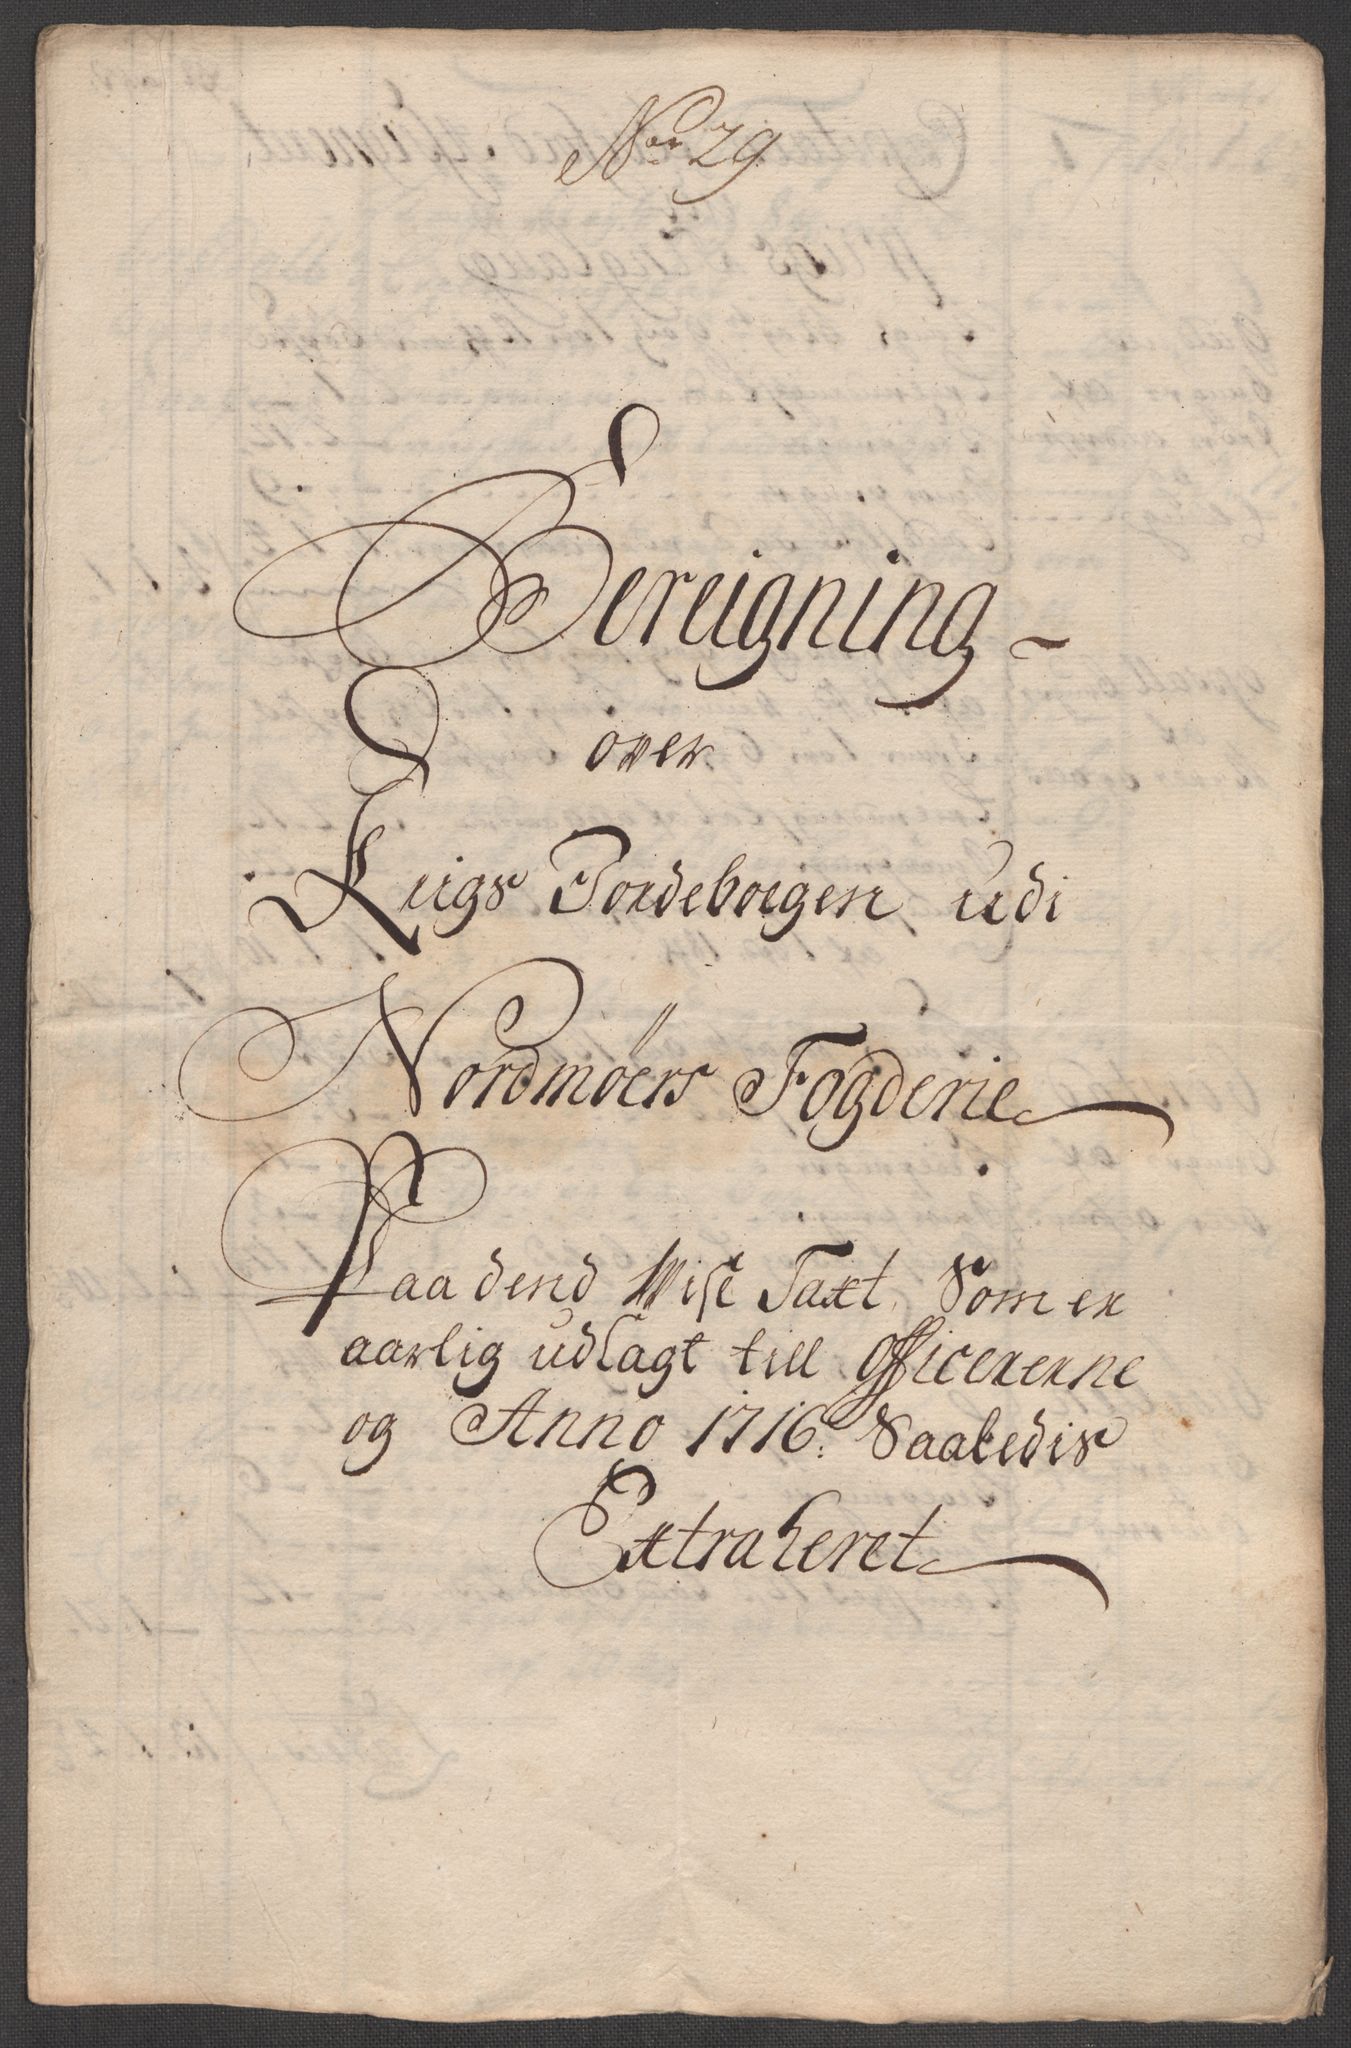 No 29
Bereigning
over
Krigs Jordebogen udi
Nordmöers Fogderie
Paa dend Wise Taxt, Som er
aarlig udlagt till Officererne
og Anno 1716: Saaledis
Extraheret